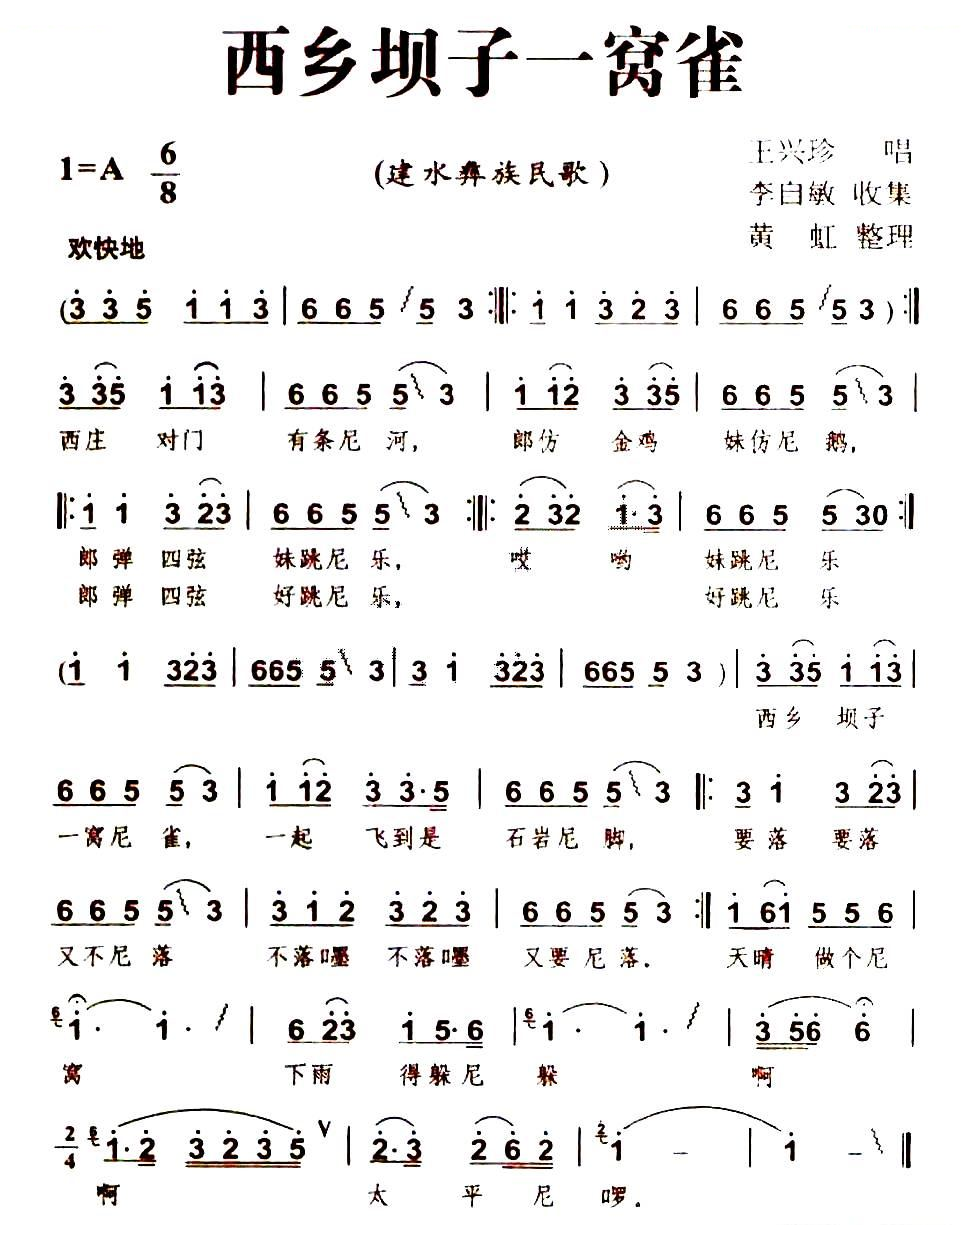 西乡坝子一窝雀
1=A 6/8
(建水彝族民歌)
王兴珍 唱
李自敏 收集
黄虹 整理
欢快地
(3 3 5 1 1 3 | 6 6 5 5 3 :||: 1 1 3 2 3 | 6 6 5 5 3 ) :||
3 35 1 13 | 6 6 5 5 3 | 1 12 3 35 | 6 6 5 5 3 |
西庄 对门 有条尼 河, 郎仿 金鸡 妹仿尼 鹅,
||: 1 1 3 23 | 6 6 5 5 3 :||: 2 32 1· 3 | 6 6 5 5 30 :||
郎弹 四弦 妹跳尼 乐, 哎 哟 妹跳尼 乐
郎弹 四弦 好跳尼 乐, 好跳尼 乐
(1 1 323 | 665 5 3 | 3 1 323 | 665 5 3 ) | 3 35 1 13 |
西乡 坝子
6 6 5 5 3 | 1 12 3 3·5 | 6 6 5 5 3 ||: 3 1 3 23 |
一窝尼 雀, 一起 飞到是 石岩尼 脚, 要落 要落
6 6 5 5 3 | 3 1 2 3 2 3 | 6 6 5 5 3 :|| 1 61 5 5 6 |
又不尼 落 不落嚜 不落嚜 又要尼落. 天晴 做个尼
6 1· 1· | 6 23 1 5·6 | 6 1· 1· | 3 56 6 |
窝 下雨 得躲尼 躲 啊
2/4 6 1·2 3 2 3 5 V | 2·3 2 6 2 | 2 1 – | 1 – ||
啊 太 平 尼 啰.